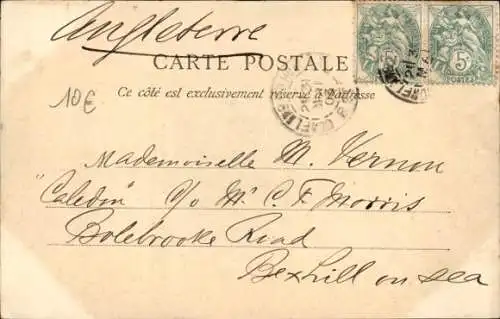 Angleterre
CARTE POSTALE
Ce côté est exclusivement réservé à l'adresse
10€
5c
POSTES
Mademoiselle M. Vernon
"Caledon" c/o Mr C. F. Morris
Bolebrooke Road
Bexhill on sea